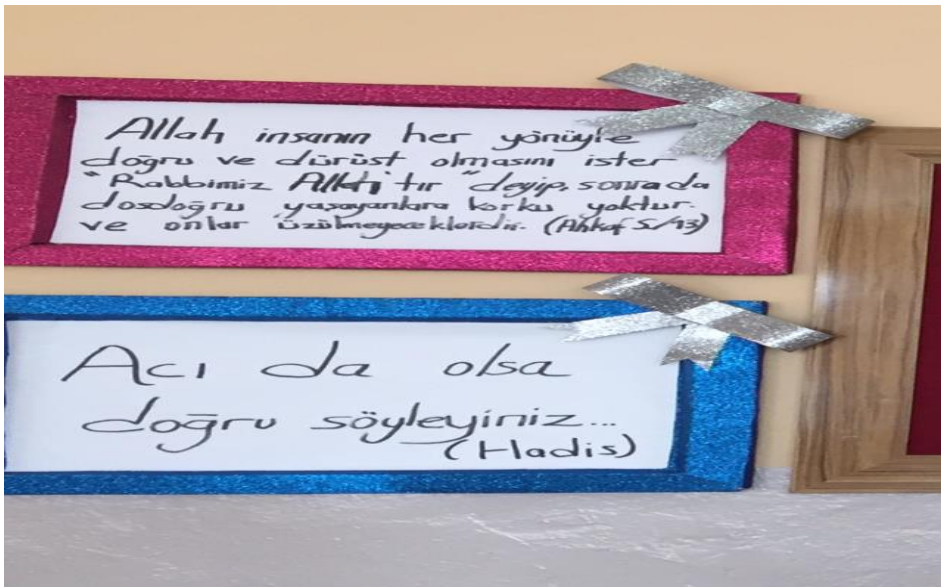 Allah insanın her yönüyle
doğru ve dürüst olmasını ister
"Rabbimiz Allah'tır" deyip, sonra da
dosdoğru yaşayanlara korku yoktur.
ve onlar üzülmeyeceklerdir. (Ahkaf S/13)
Acı da olsa
doğru söyleyiniz...
(Hadis)